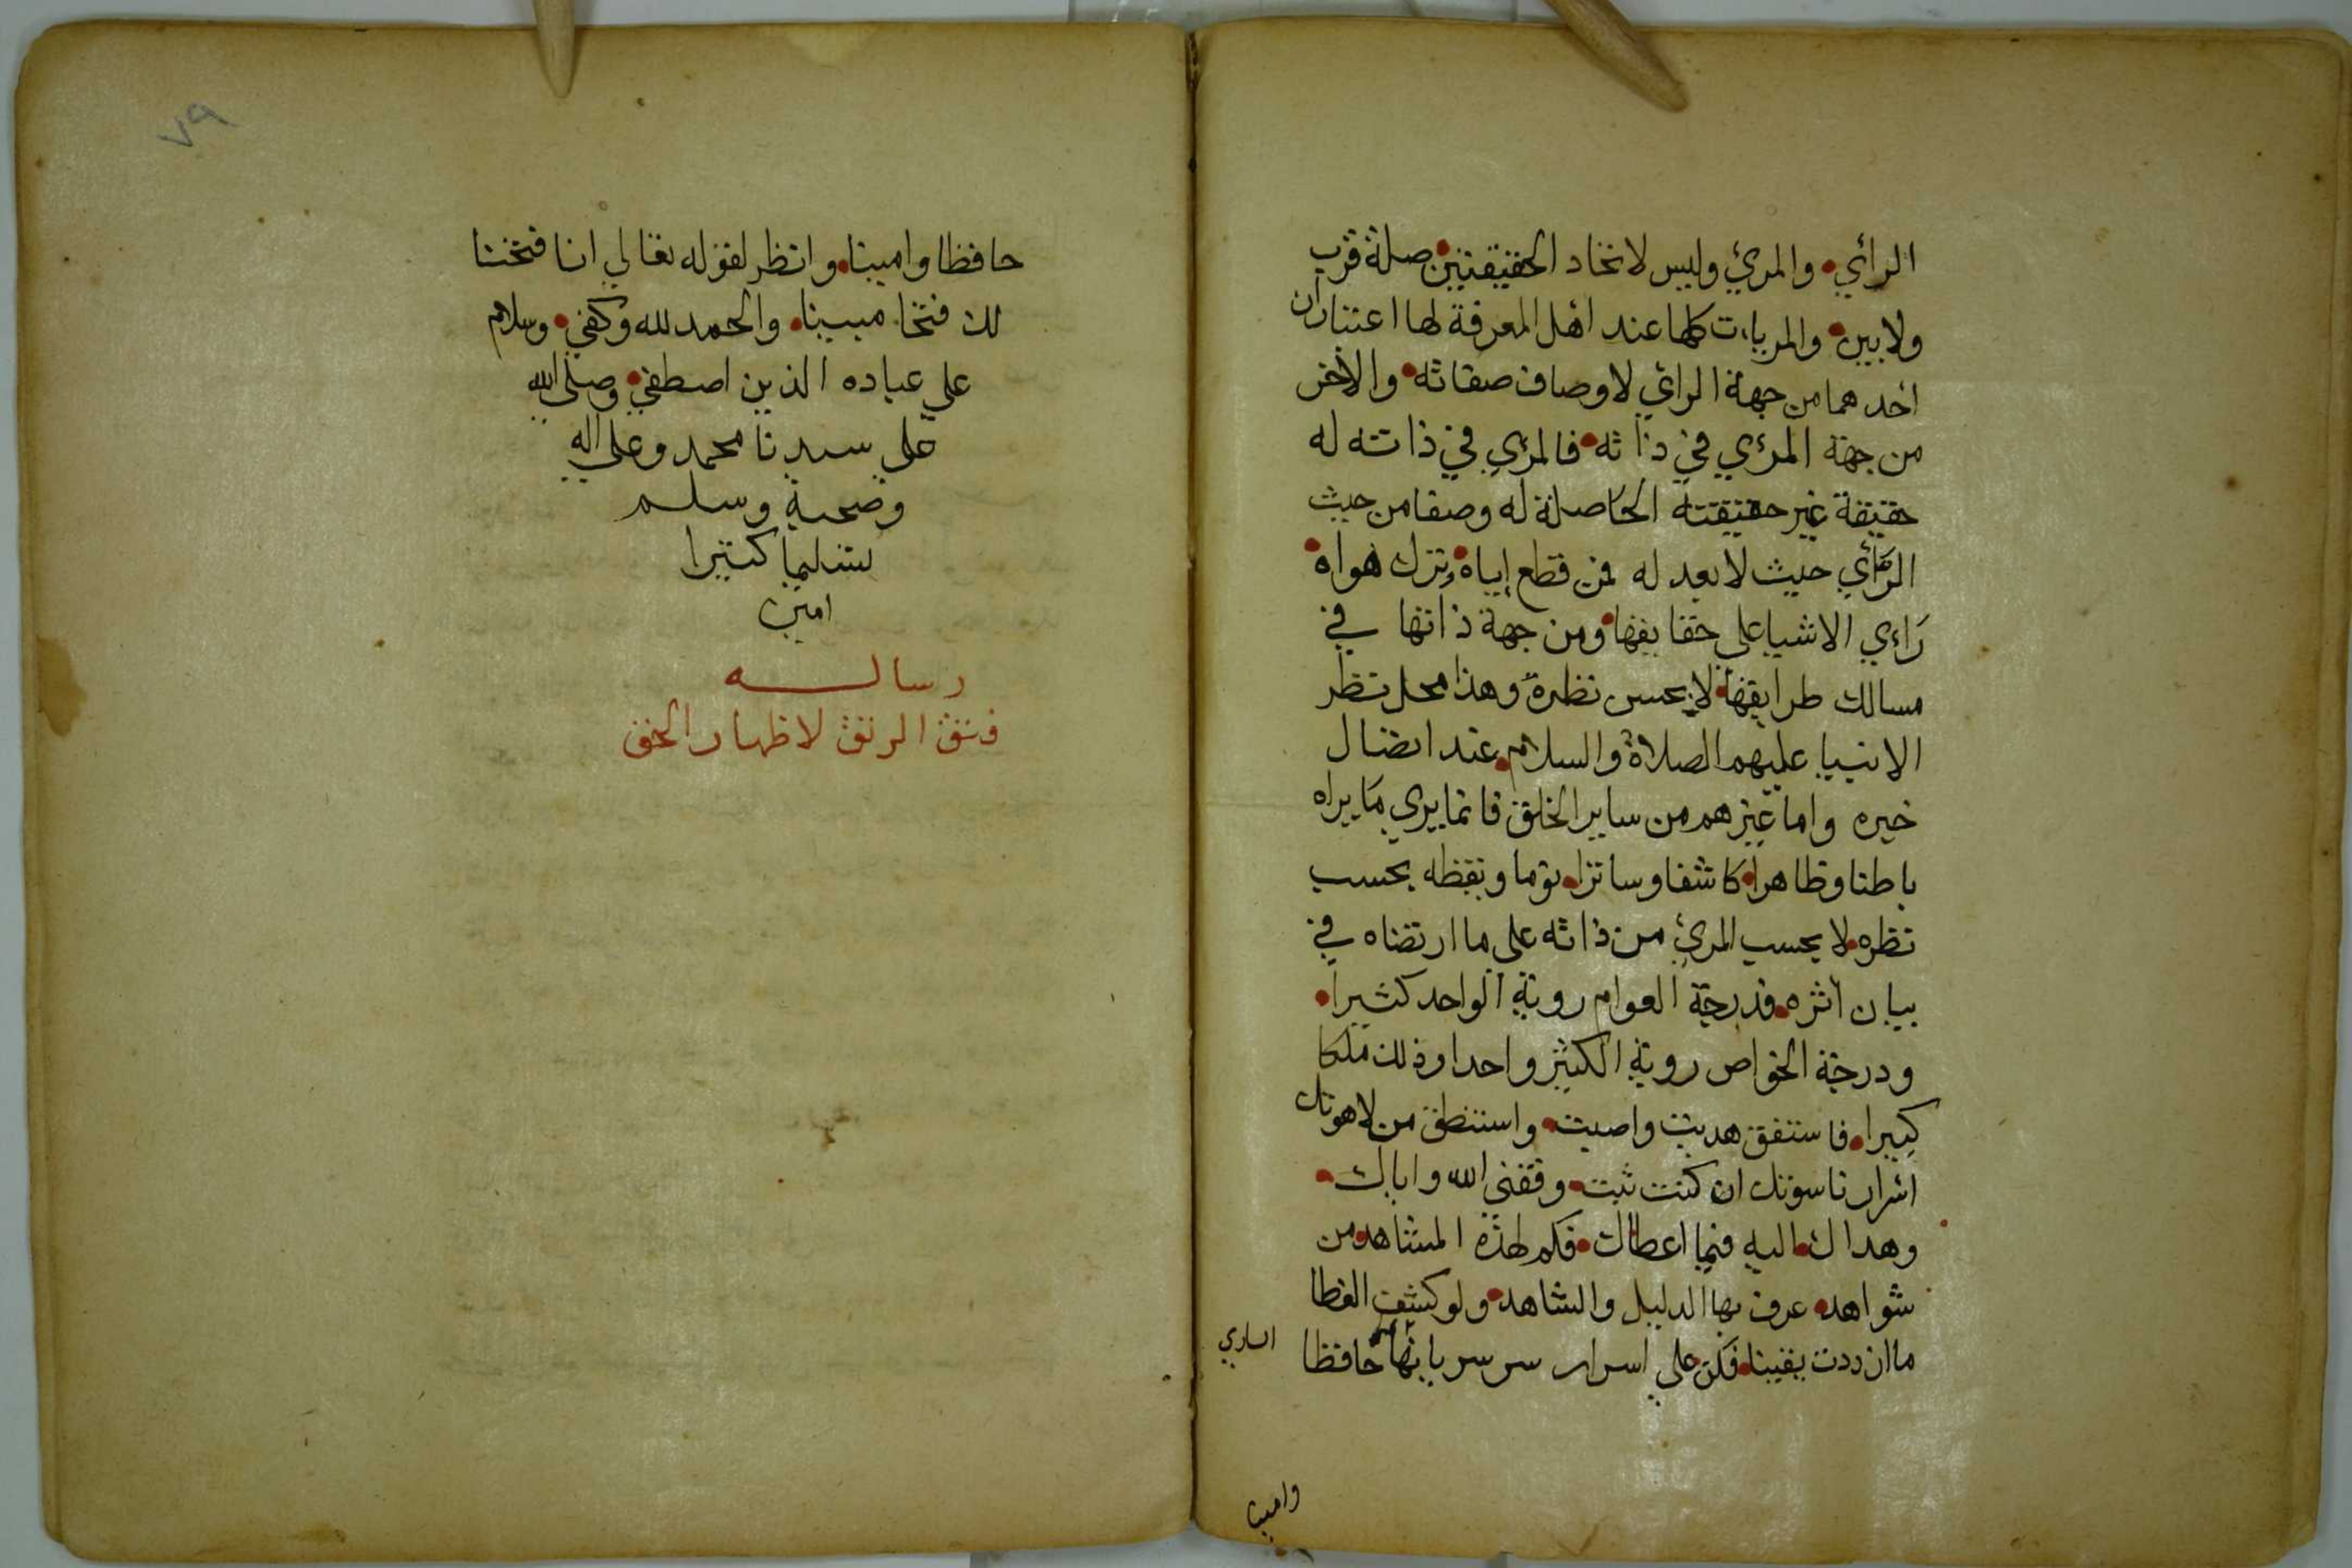 الرأي والمرئ وليس لاتحاد الحقيقتين صلة قرب
ولا بين والمرياءت كلها عند اهل المعرفة لها اعتباران
احدهما من جهة الرائي لاوصاف صفاته والاخر
من جهة المرءي في ذاته فالمرءي في ذاته له
حقيقة غير حقيقته الحاصلة له وصفا من حيث
الرأي حيث لا بعد له فمن قطع إياه وترك هواه
راءي الاشيا على حقايقها ومن جهة ذاتها في
مسالك طرايقها لا بحسن نظره وهذا محل نظر
الانبيا عليهم الصلاة والسلام عند اتصال
خيره واما غيرهم من ساير الخلق فانما يري ما يراه
باطنا وظاهرا كاشفا وساترا نوما ويقظه بحسب
نظره لا بحسب المرئ من ذاته على ما ارتضاه في
بيان اثره فدرجة العوام روية الواحد كثيرا
ودرجة الخواص روية الكثير واحدا وذلك ملكا
كبيرا فاستفق هديت واصبت واستنطق من لاهوتك
اسرار ناسوتك ان كنت ثبت وفقني الله واياك
وهداك اليه فيما اعطاك فكم لهذه المشاهد من
شواهد عرف بها الدليل والشاهد ولو كشف الغطا
ما ازددت يقينا فكن على اسرار سر سريانها حافظا
الساري
وامينا
٧٩
حافظا وامينا وانظر لقوله تعالي انا فتحنا
لك فتحا مبينا والحمد لله وكفي وسلام
علي عباده الذين اصطفي وصلى الله
علي سيدنا محمد وعلى اله
وصحبه وسلم
تسليما كثيرا
امين
رساله
فتق الرتق لاظهار الحق